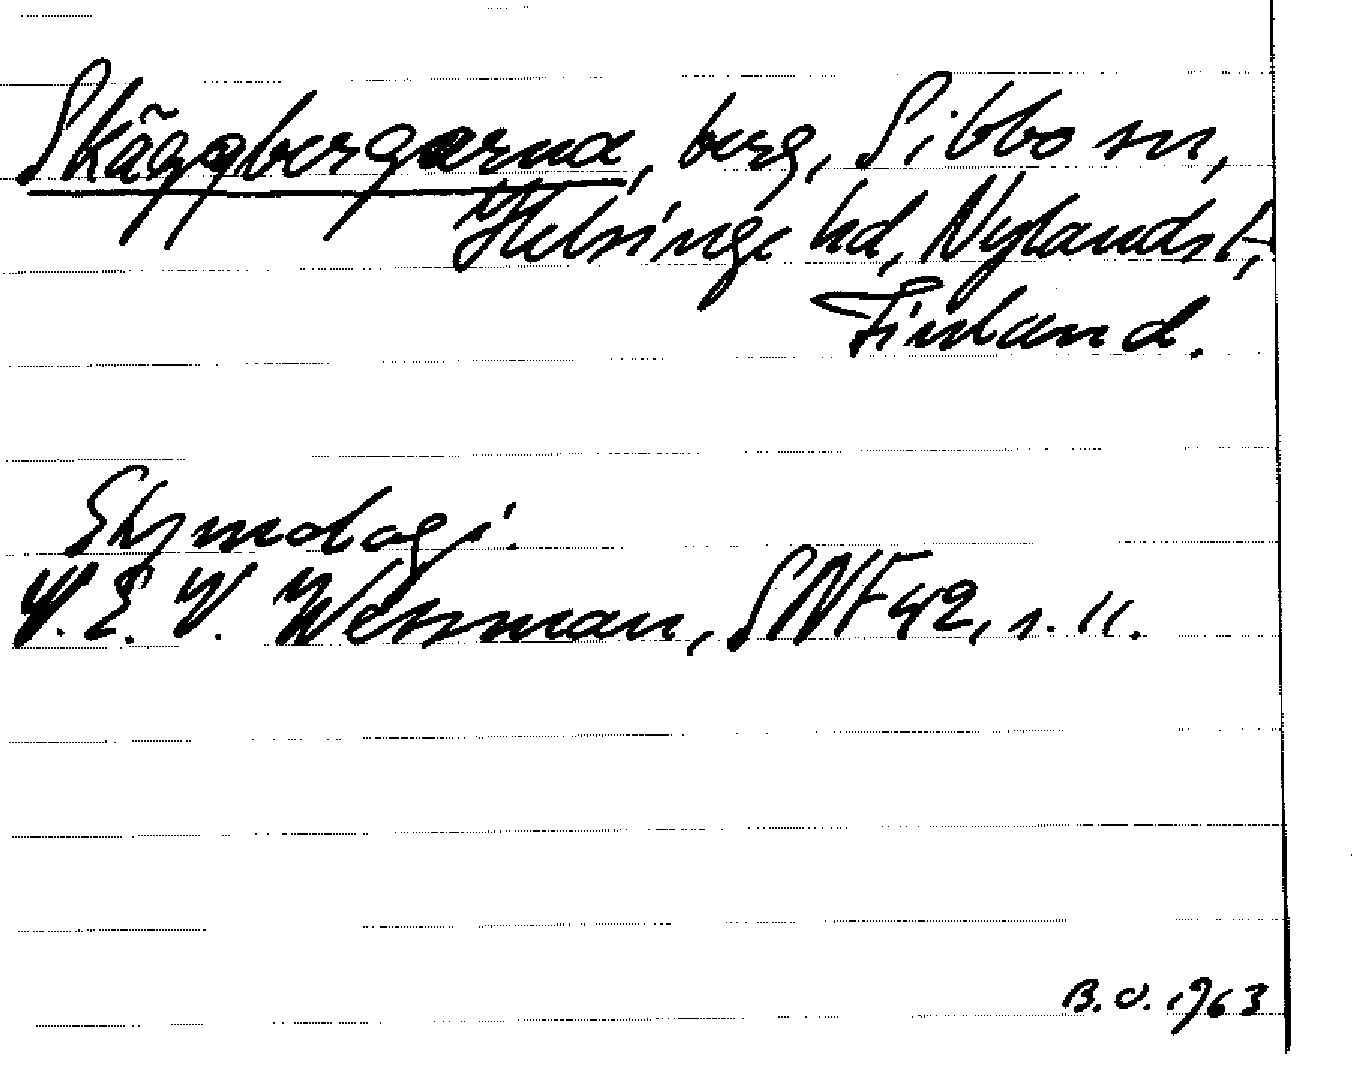 Skäggbergarna, berg, Sibbo sn,
Helsinge hd, Nylands l,
Finland.
Etymologi.
V. E. V. Wessman, SNF 42, s. 11.
B. O. 1963